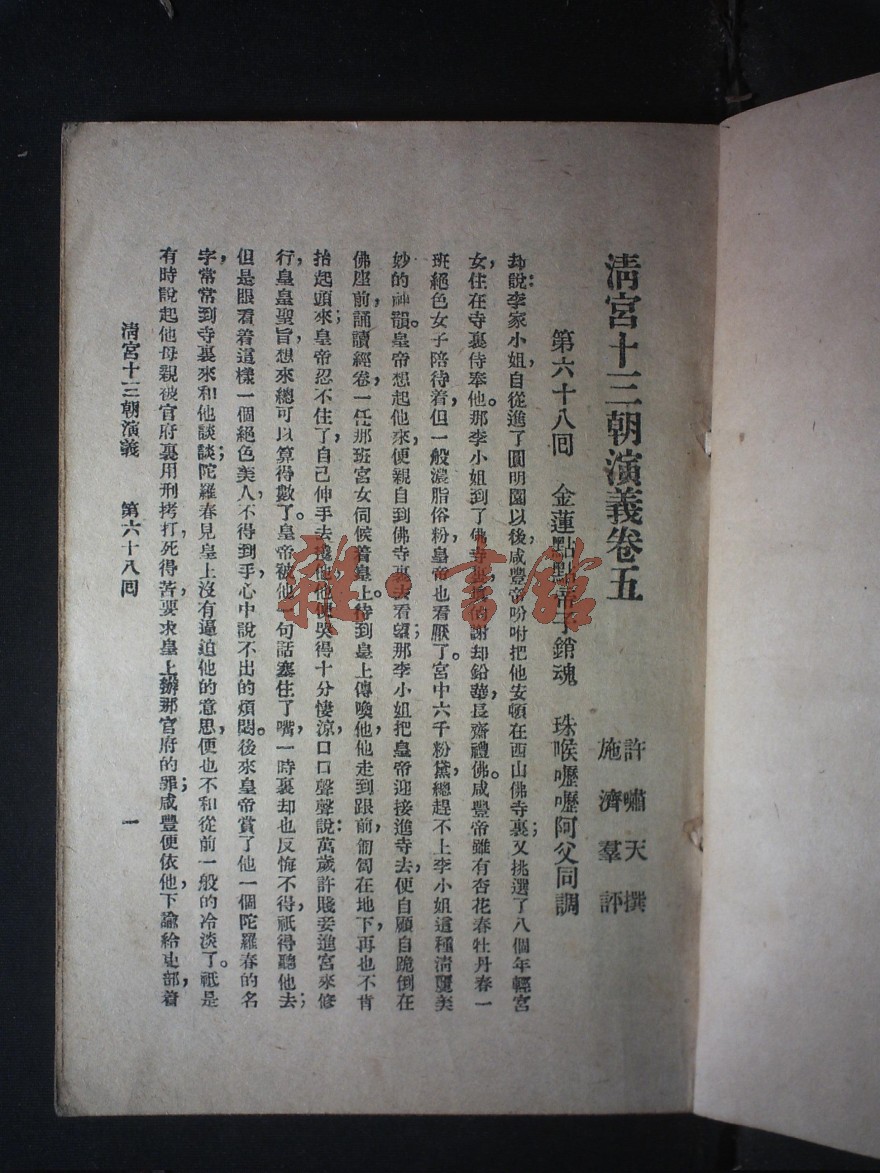 清宮十三朝演義卷五
許嘯天撰
施濟羣評
第六十八囘 金蓮點點帝子銷魂 珠喉嚦嚦阿父同調
却說李家小姐自從進了圓明園以後咸豐帝吩咐把他安頓在西山佛寺裏又挑選了八個年輕宮
女住在寺裏侍奉他。那李小姐到了佛寺裏眞的謝却鉛華長齋禮佛。咸豐帝雖有杏花春牡丹春一
班絕色女子陪侍着但一般濃脂俗粉皇帝也看厭了。宮中六千粉黛總趕不上李小姐這種清麗美
妙的神韻。皇帝想起他來便親自到佛寺裏去看望那李小姐把皇帝迎接進寺去便自顧自跪倒在
佛座前誦讀經卷一任那班宮女伺候着皇上待到皇上傳喚他他走到跟前匍匐在地下再也不肯
抬起頭來皇帝忍不住了自己伸手去 他他便哭得十分悽涼口口聲聲說萬歲許賤妾進宮來修
行皇皇聖旨想來總可以算得數了。皇帝被他一句話塞住了嘴一時裏却也反悔不得祇得聽他去
但是眼看着這樣一個絕色美人不得到手心中說不出的煩悶。後來皇帝賞了他一個陀羅春的名
字常常到寺裏來和他談談陀羅春見皇上沒有逼迫他的意思便也不和從前一般的冷淡了。祇是
有時說起他母親被官府裏用刑拷打死得苦要求皇上辦那官府的罪咸豐便依他下諭給吏部着
清宮十三朝演義 第六十八囘 一
雜·書館